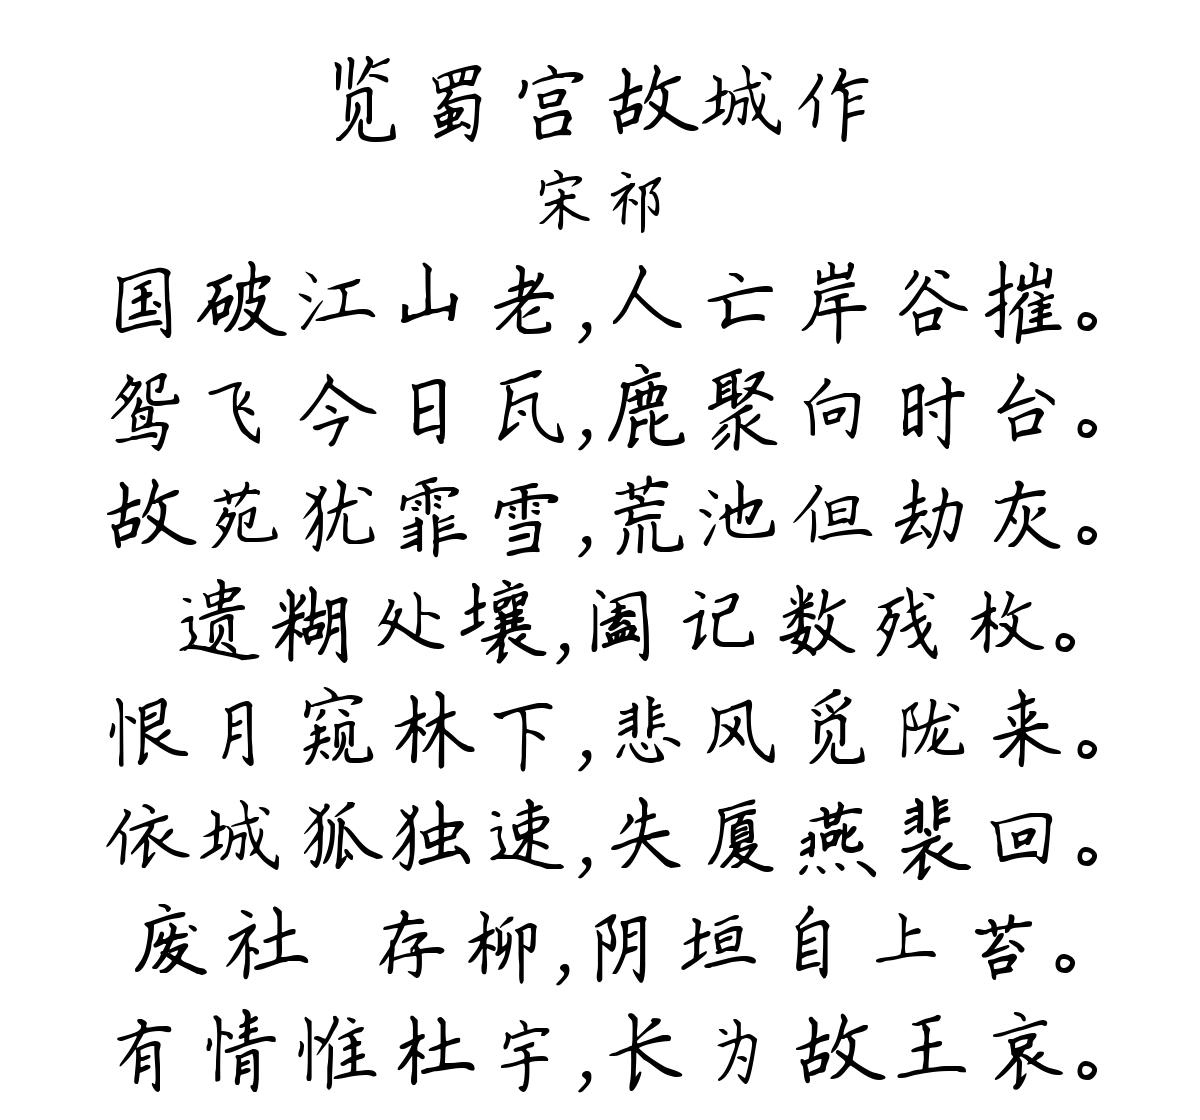 览蜀宫故城作
宋祁
国破江山老,人亡岸谷摧。
鸳飞今日瓦,鹿聚向时台。
故苑犹霏雪,荒池但劫灰。
遗糊处壤,阖记数残枚。
恨月窥林下,悲风觅陇来。
依城狐独速,失厦燕裴回。
废社 存柳,阴垣自上苔。
有情惟杜宇,长为故王哀。